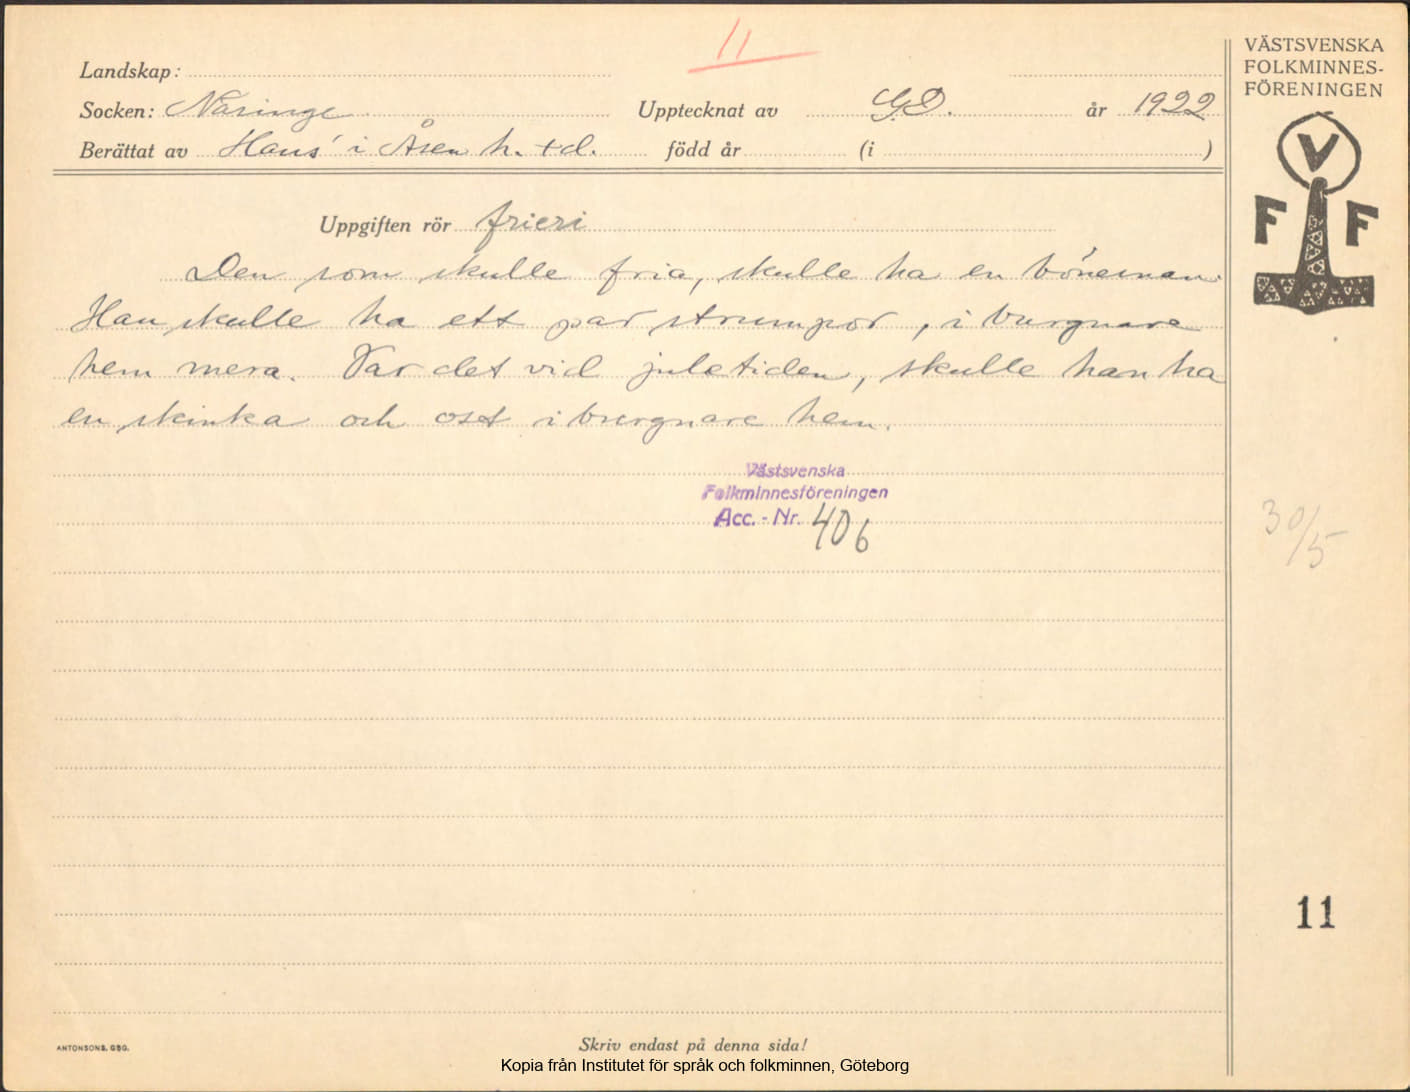 11
VÄSTSVENSKA
FOLKMINNES-
FÖRENINGEN
Landskap:
Socken: Näsinge Upptecknat av G.D. år 1922
Berättat av Hans' i Åsen h. + d. född år (i )
V
F F
Uppgiften rör frieri
Den som skulle fria, skulle ha en böneman.
Han skulle ha ett par strumpor, i burgnare
hem mera. Var det vid juletiden, skulle han ha
en skinka och ost i burgnare hem.
Västsvenska
Folkminnesföreningen
Acc. - Nr. 406
30/5
11
ANTONSONS, GBG.
Skriv endast på denna sida!
Kopia från Institutet för språk och folkminnen, Göteborg